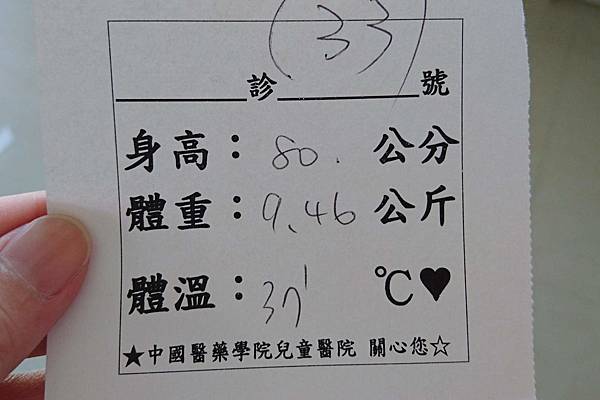 33
診 號
身高：80. 公分
體重：9.46 公斤
體溫：37' ℃♥
★中國醫藥學院兒童醫院 關心您☆